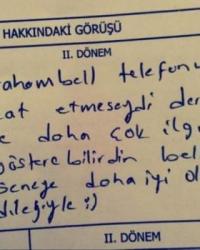 HAKKINDAKİ GÖRÜŞÜ
II. DÖNEM
rahambell telefonu
cat etmeseydi der
e daha çok ilgi
göstere bilirdin bel
seneye daha iyi ol
dileğiyle :)
II. DÖNEM